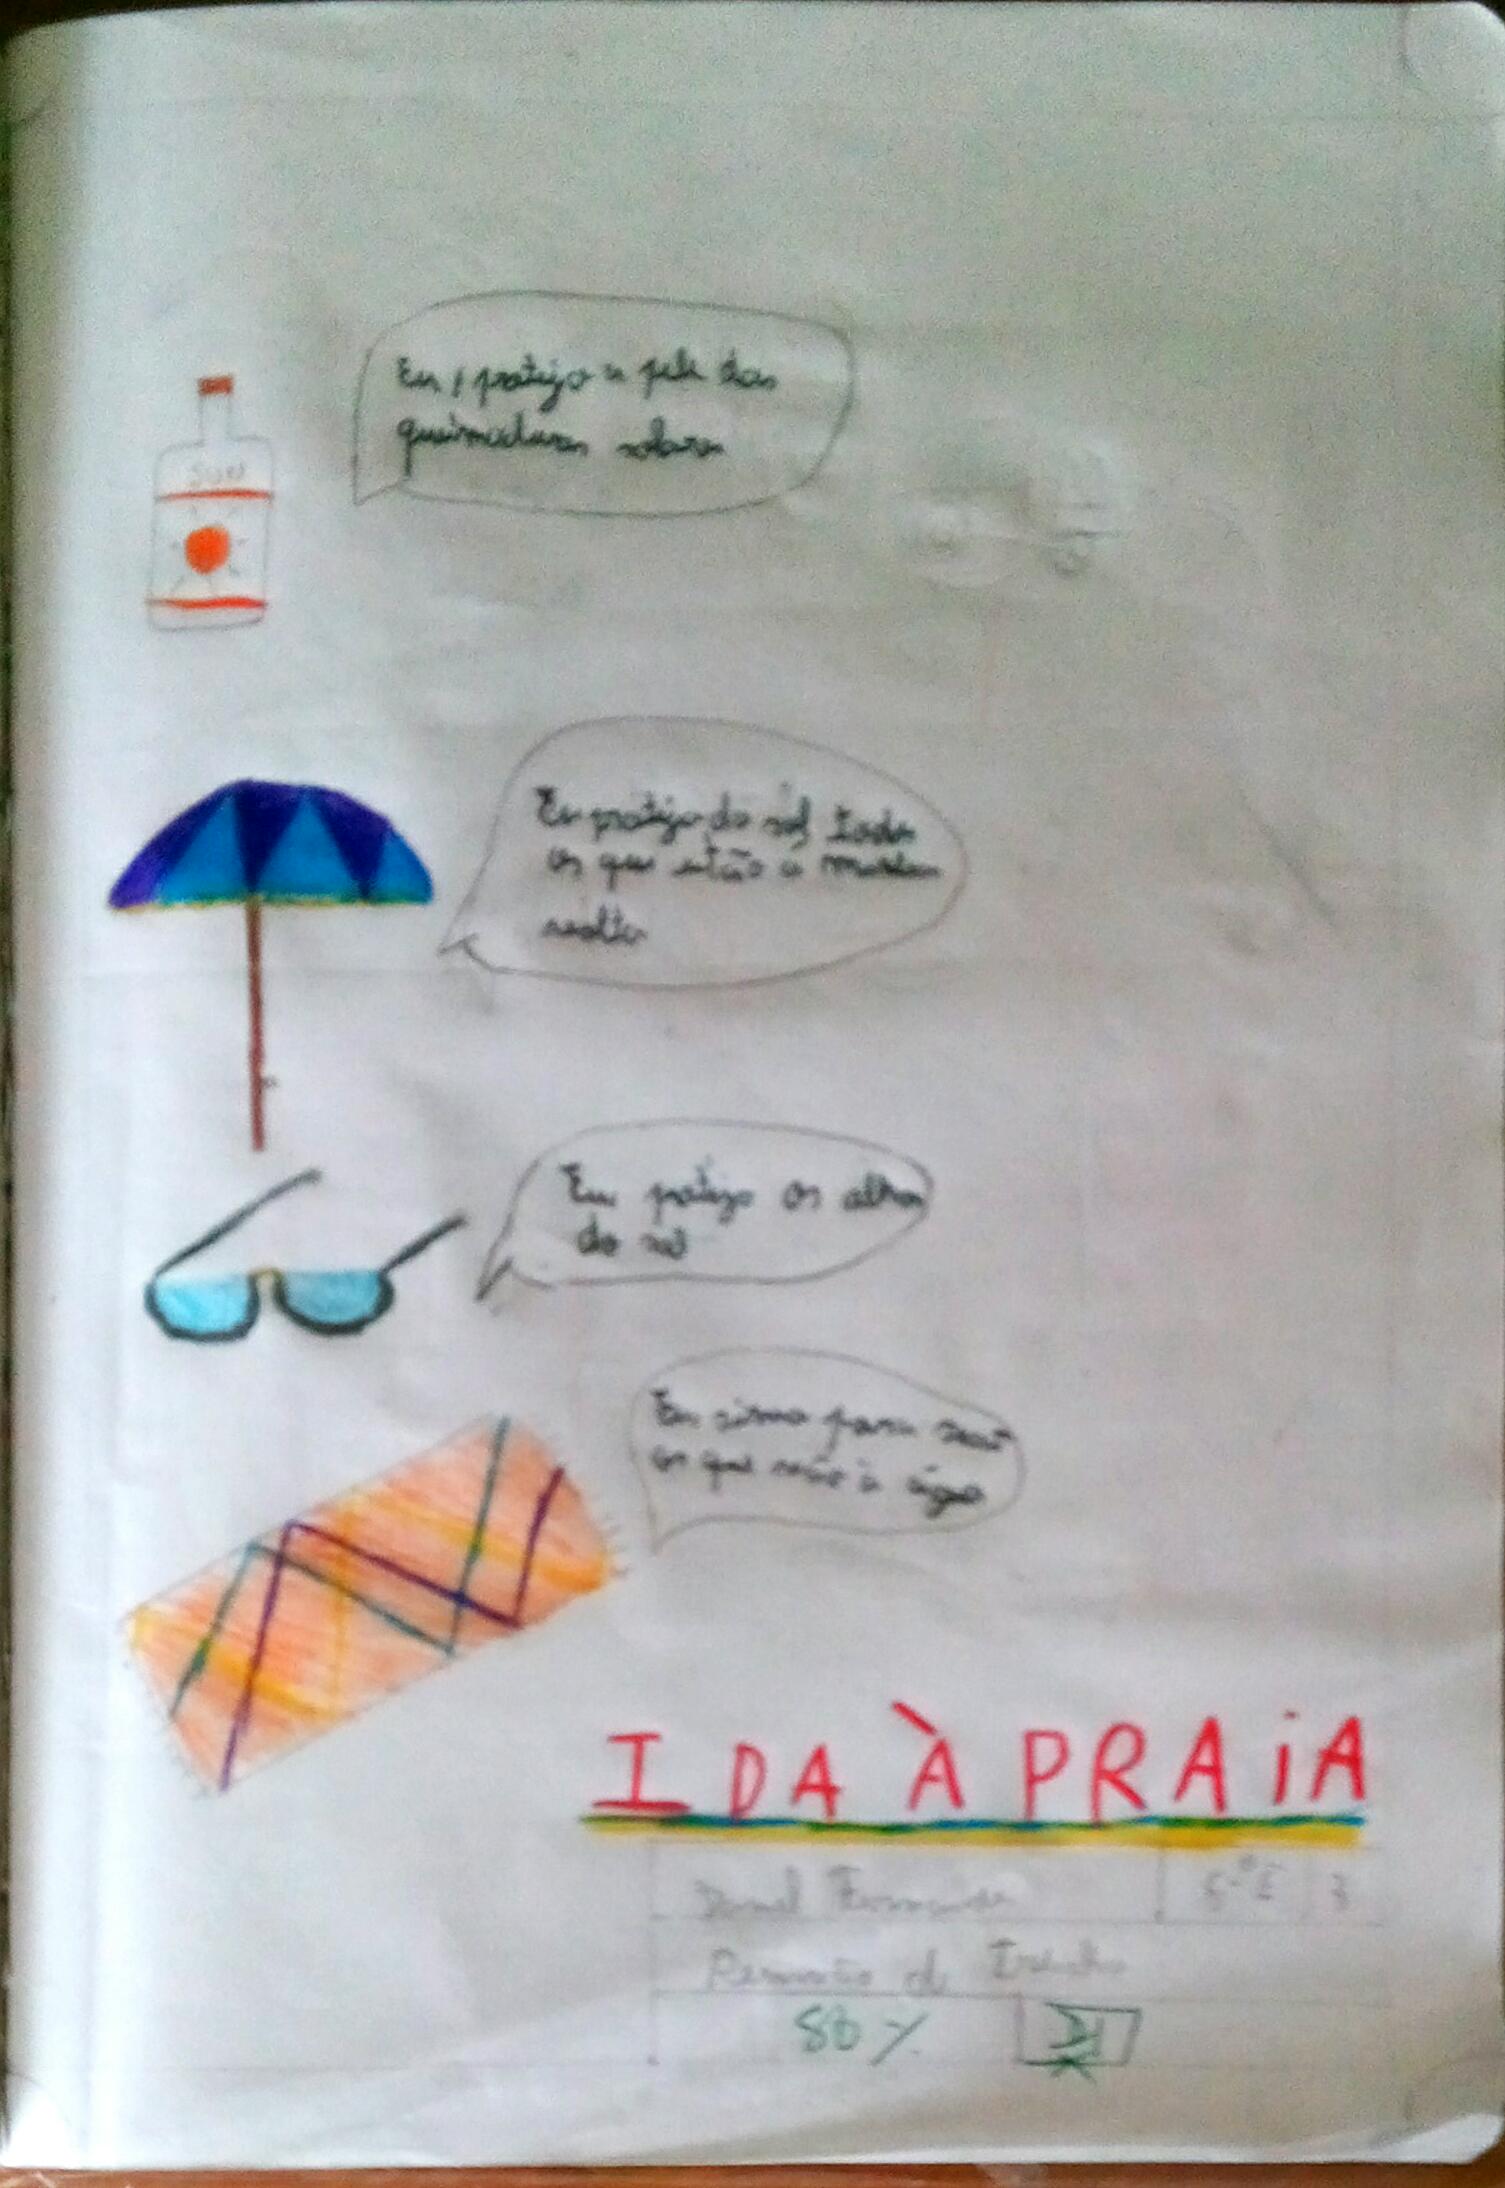 Eu, protejo a pele das
queimaduras solares
SUN
Eu protejo do sol todos
os que estão à minha
volta
Eu protejo os olhos
do sol
Eu sirvo para secar
os que vão à água
IDA À PRAiA
5.º E 3
de Trabalho
80%